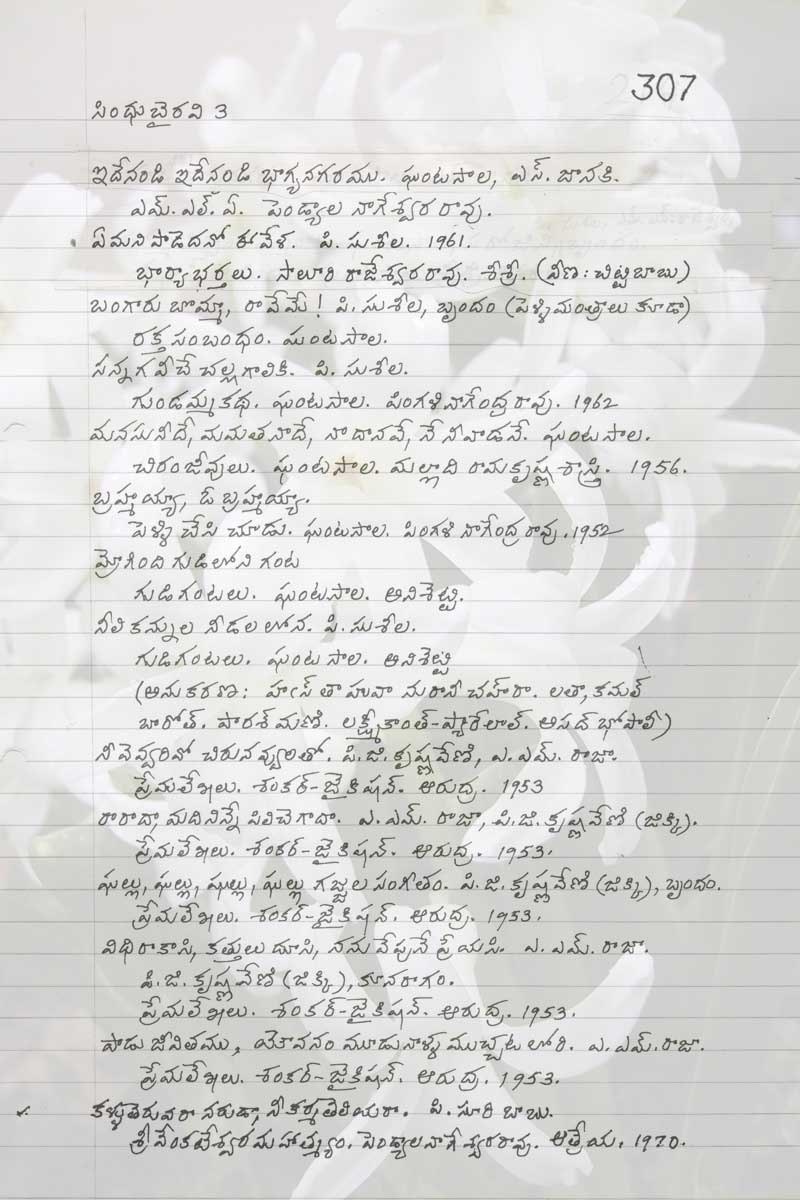 307
సింధుభైరవి 3
ఇదేనండి ఇదేనండి భాగ్యనగరము. ఘంటసాల, ఎస్. జానకి.
ఎమ్. ఎల్. ఏ. పెండ్యాల నాగేశ్వర రావు.
ఏమని పాడెదనో ఈవేళ. పి. సుశీల. 1961.
భార్యాభర్తలు. సాలూరి రాజేశ్వరరావు. శ్రీశ్రీ. (వీణ: చిట్టిబాబు)
బంగారు బొమ్మా, రావేమే! పి. సుశీల, బృందం (పెళ్ళిమంత్రాలు కూడా)
రక్త సంబంధం. ఘంటసాల.
సన్నగ వీచే చల్లగాలికి. పి. సుశీల.
గుండమ్మకథ. ఘంటసాల. పింగళి నాగేంద్ర రావు. 1962
మనసు నీదే, మమత నాదే, నా దానవే, నే నీవాడనే. ఘంటసాల.
చిరంజీవులు. ఘంటసాల. మల్లాది రామకృష్ణ శాస్త్రి. 1956.
బ్రహ్మయ్యా, ఓ బ్రహ్మయ్యా.
పెళ్ళి చేసి చూడు. ఘంటసాల. పింగళి నాగేంద్ర రావు. 1952
మ్రోగింది గుడిలోని గంట
గుడిగంటలు. ఘంటసాల. అనిశెట్టి.
నీలి కన్నుల నీడల లోన. పి. సుశీల.
గుడిగంటలు. ఘంటసాల. అనిశెట్టి
(అనుకరణ: హఁస్ తా హువా నురానీ చహ్ రా. లతా, కమల్
బారోత్. పారశ్ మణి. లక్ష్మీకాంత్-ప్యారేలాల్. అసద్ భోపాలీ)
నీ వెవ్వరివో చిరునవ్వులతో. పి. జి. కృష్ణవేణి, ఎ. ఎమ్. రాజా.
ప్రేమలేఖలు. శంకర్-జైకిషన్. ఆరుద్ర. 1953
రారాదా, మది నిన్నే పిలిచెగాదా. ఎ. ఎమ్. రాజా, పి. జి. కృష్ణవేణి (జిక్కి).
ప్రేమలేఖలు. శంకర్-జైకిషన్. ఆరుద్ర. 1953.
ఘల్లు, ఘల్లు, ఘల్లు, ఘల్లు గజ్జల సంగీతం. పి. జి. కృష్ణవేణి (జిక్కి), బృందం.
ప్రేమలేఖలు. శంకర్-జైకిషన్. ఆరుద్ర. 1953.
విధి రాకాసి, కత్తులు దూసి, నను వేపునే ప్రేయసి. ఎ. ఎమ్. రాజా.
పి. జి. కృష్ణవేణి (జిక్కి), కూనరాగం.
ప్రేమలేఖలు. శంకర్-జైకిషన్. ఆరుద్ర. 1953.
పాడు జీవితము, యౌవనం మూడునాళ్ళ ముచ్చట లోరి. ఎ. ఎమ్. రాజా.
ప్రేమలేఖలు. శంకర్-జైకిషన్. ఆరుద్ర. 1953.
కళ్ళు తెరువరా నరుడా, నీ కర్మ తెలియరా. పి. సూరి బాబు.
శ్రీ వేంకటేశ్వర మహాత్మ్యం. పెండ్యాల నాగేశ్వరరావు. ఆత్రేయ. 1970.